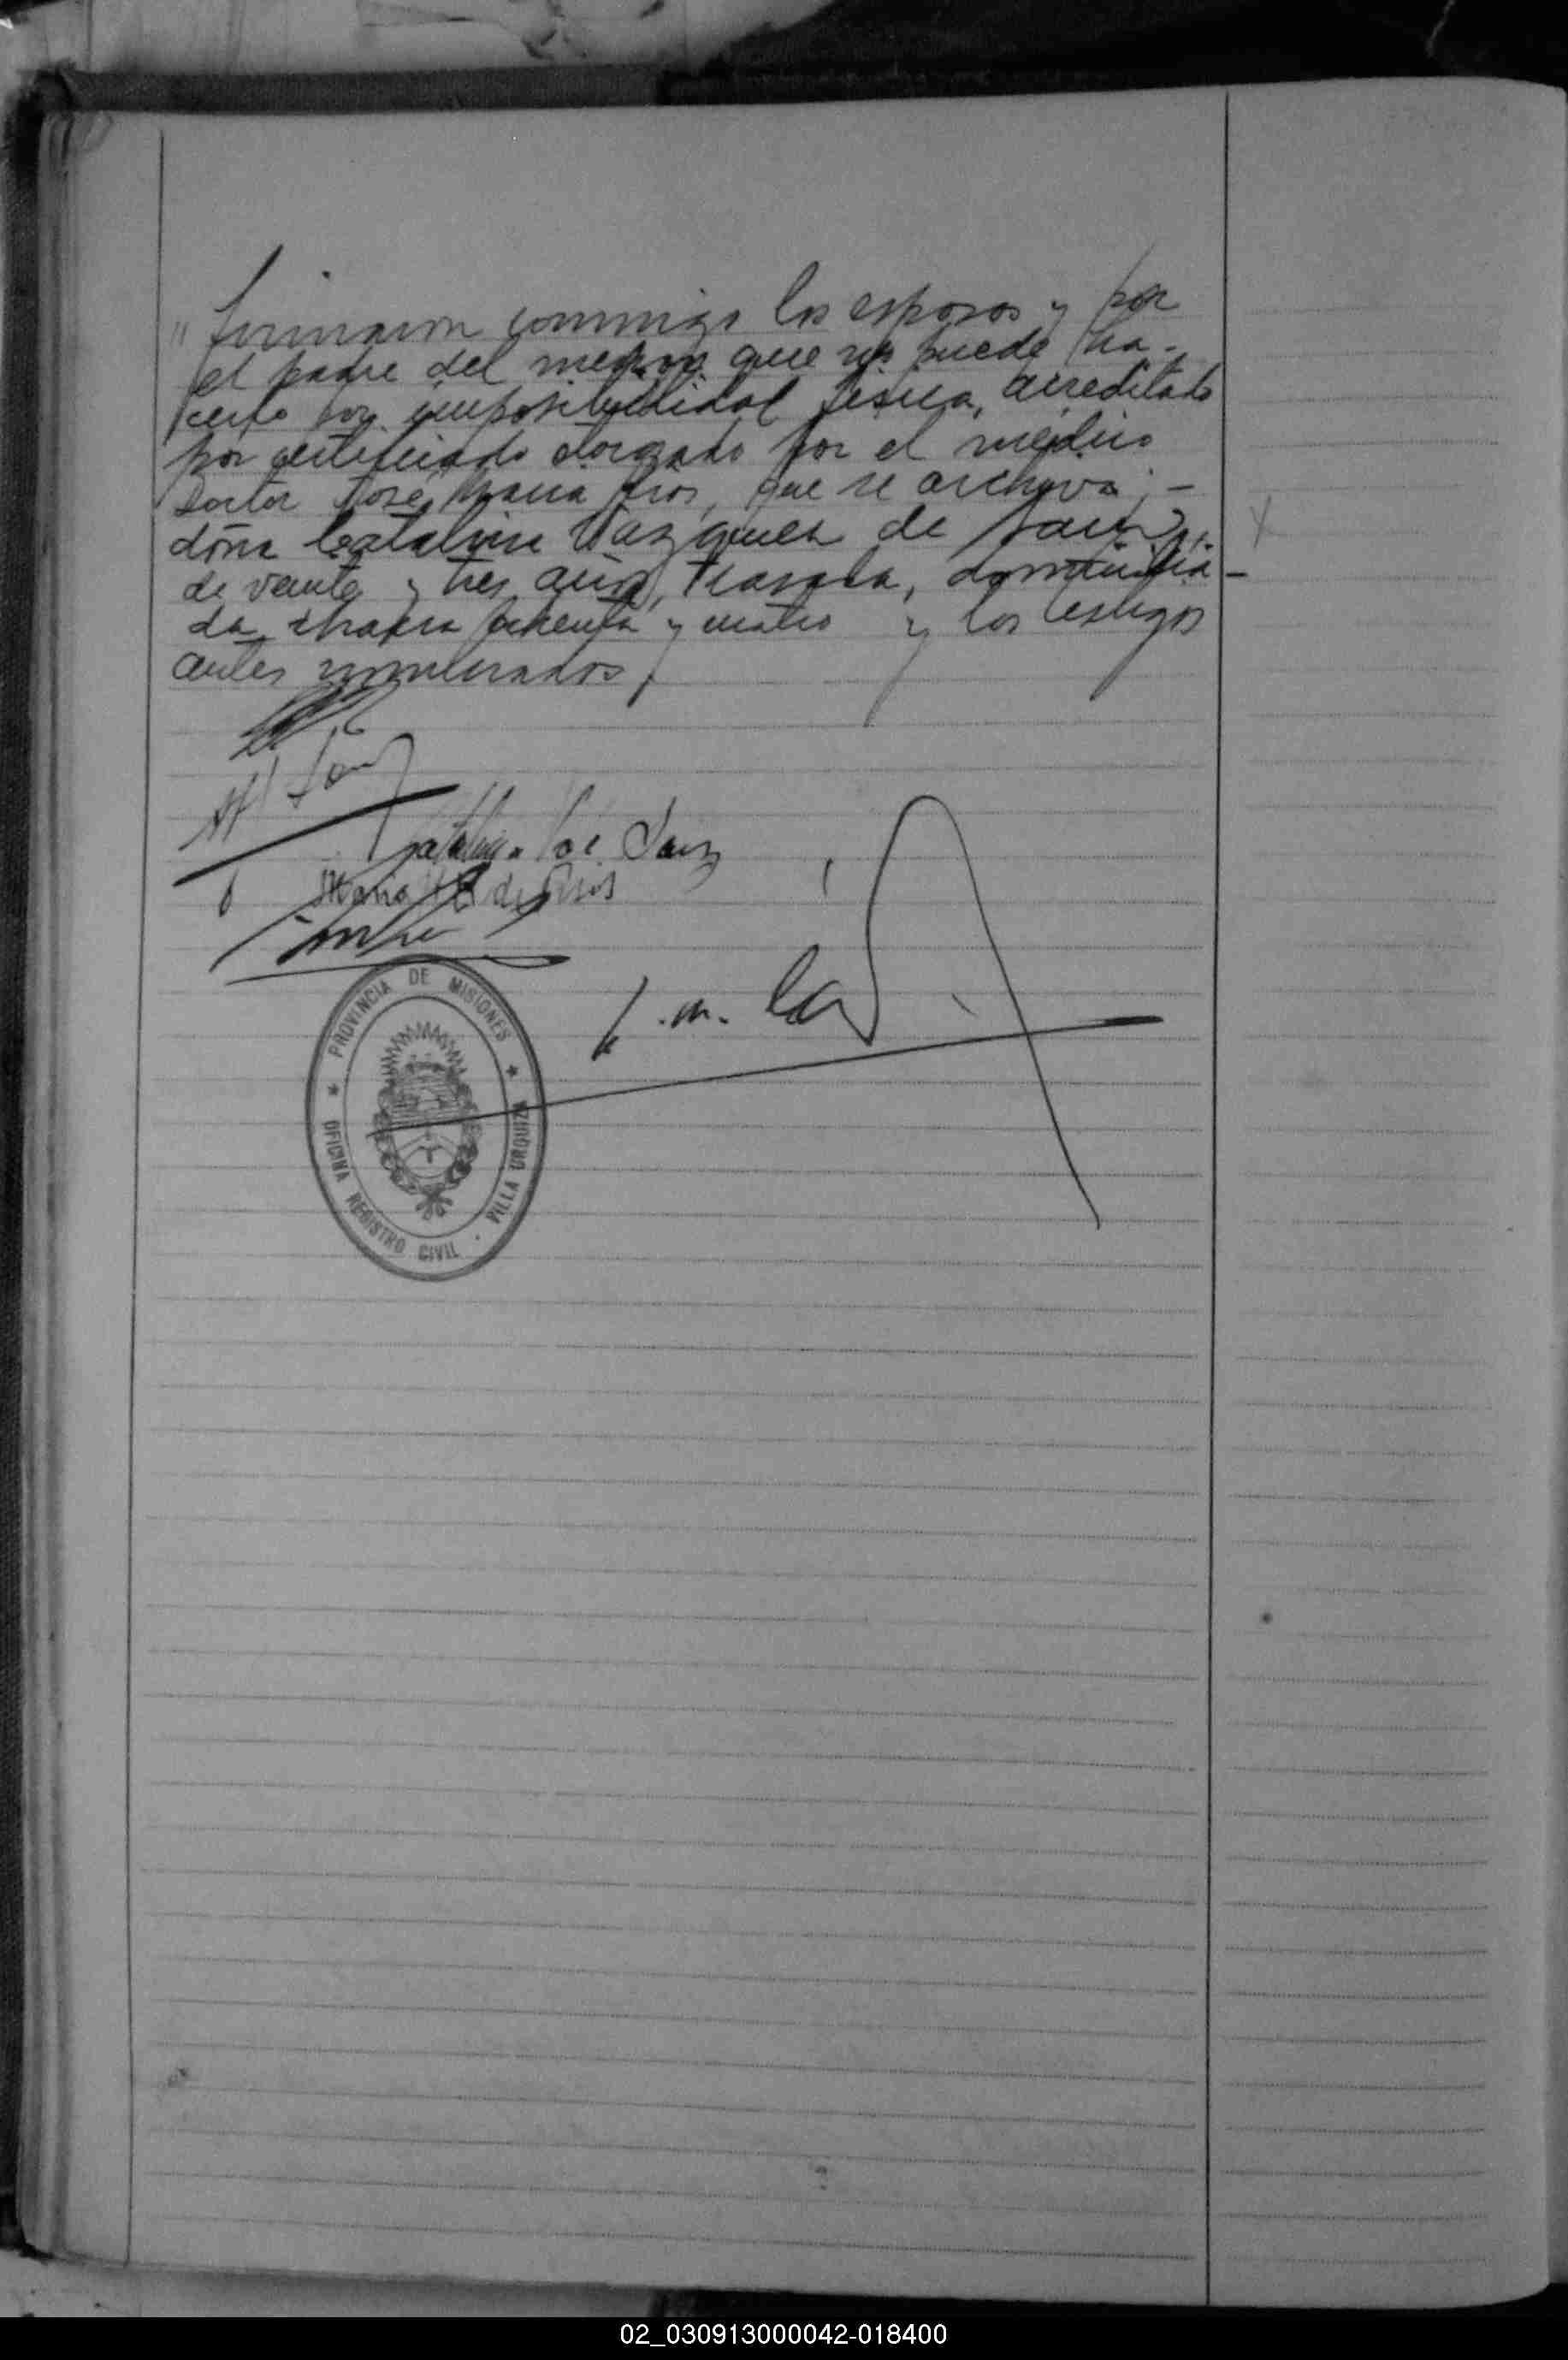 " firmaron conmigo los esposos y por
el padre del menor que no puede ha-
cerlo por imposibilidad física, acreditado
por certificado otorgado por el médico
Doctor José María Rios, que se archiva; -
doña Catalina Vazquez de Sainz,
de veinte y tres años, casada, domicilia-
da chacra ochenta y cuatro y los testigos
antes nombrados,
Catalina V. de Sainz
Maria de Rios
J. M.
PROVINCIA DE MISIONES
OFICINA REGISTRO CIVIL . VILLA URQUIZA
02_030913000042-018400